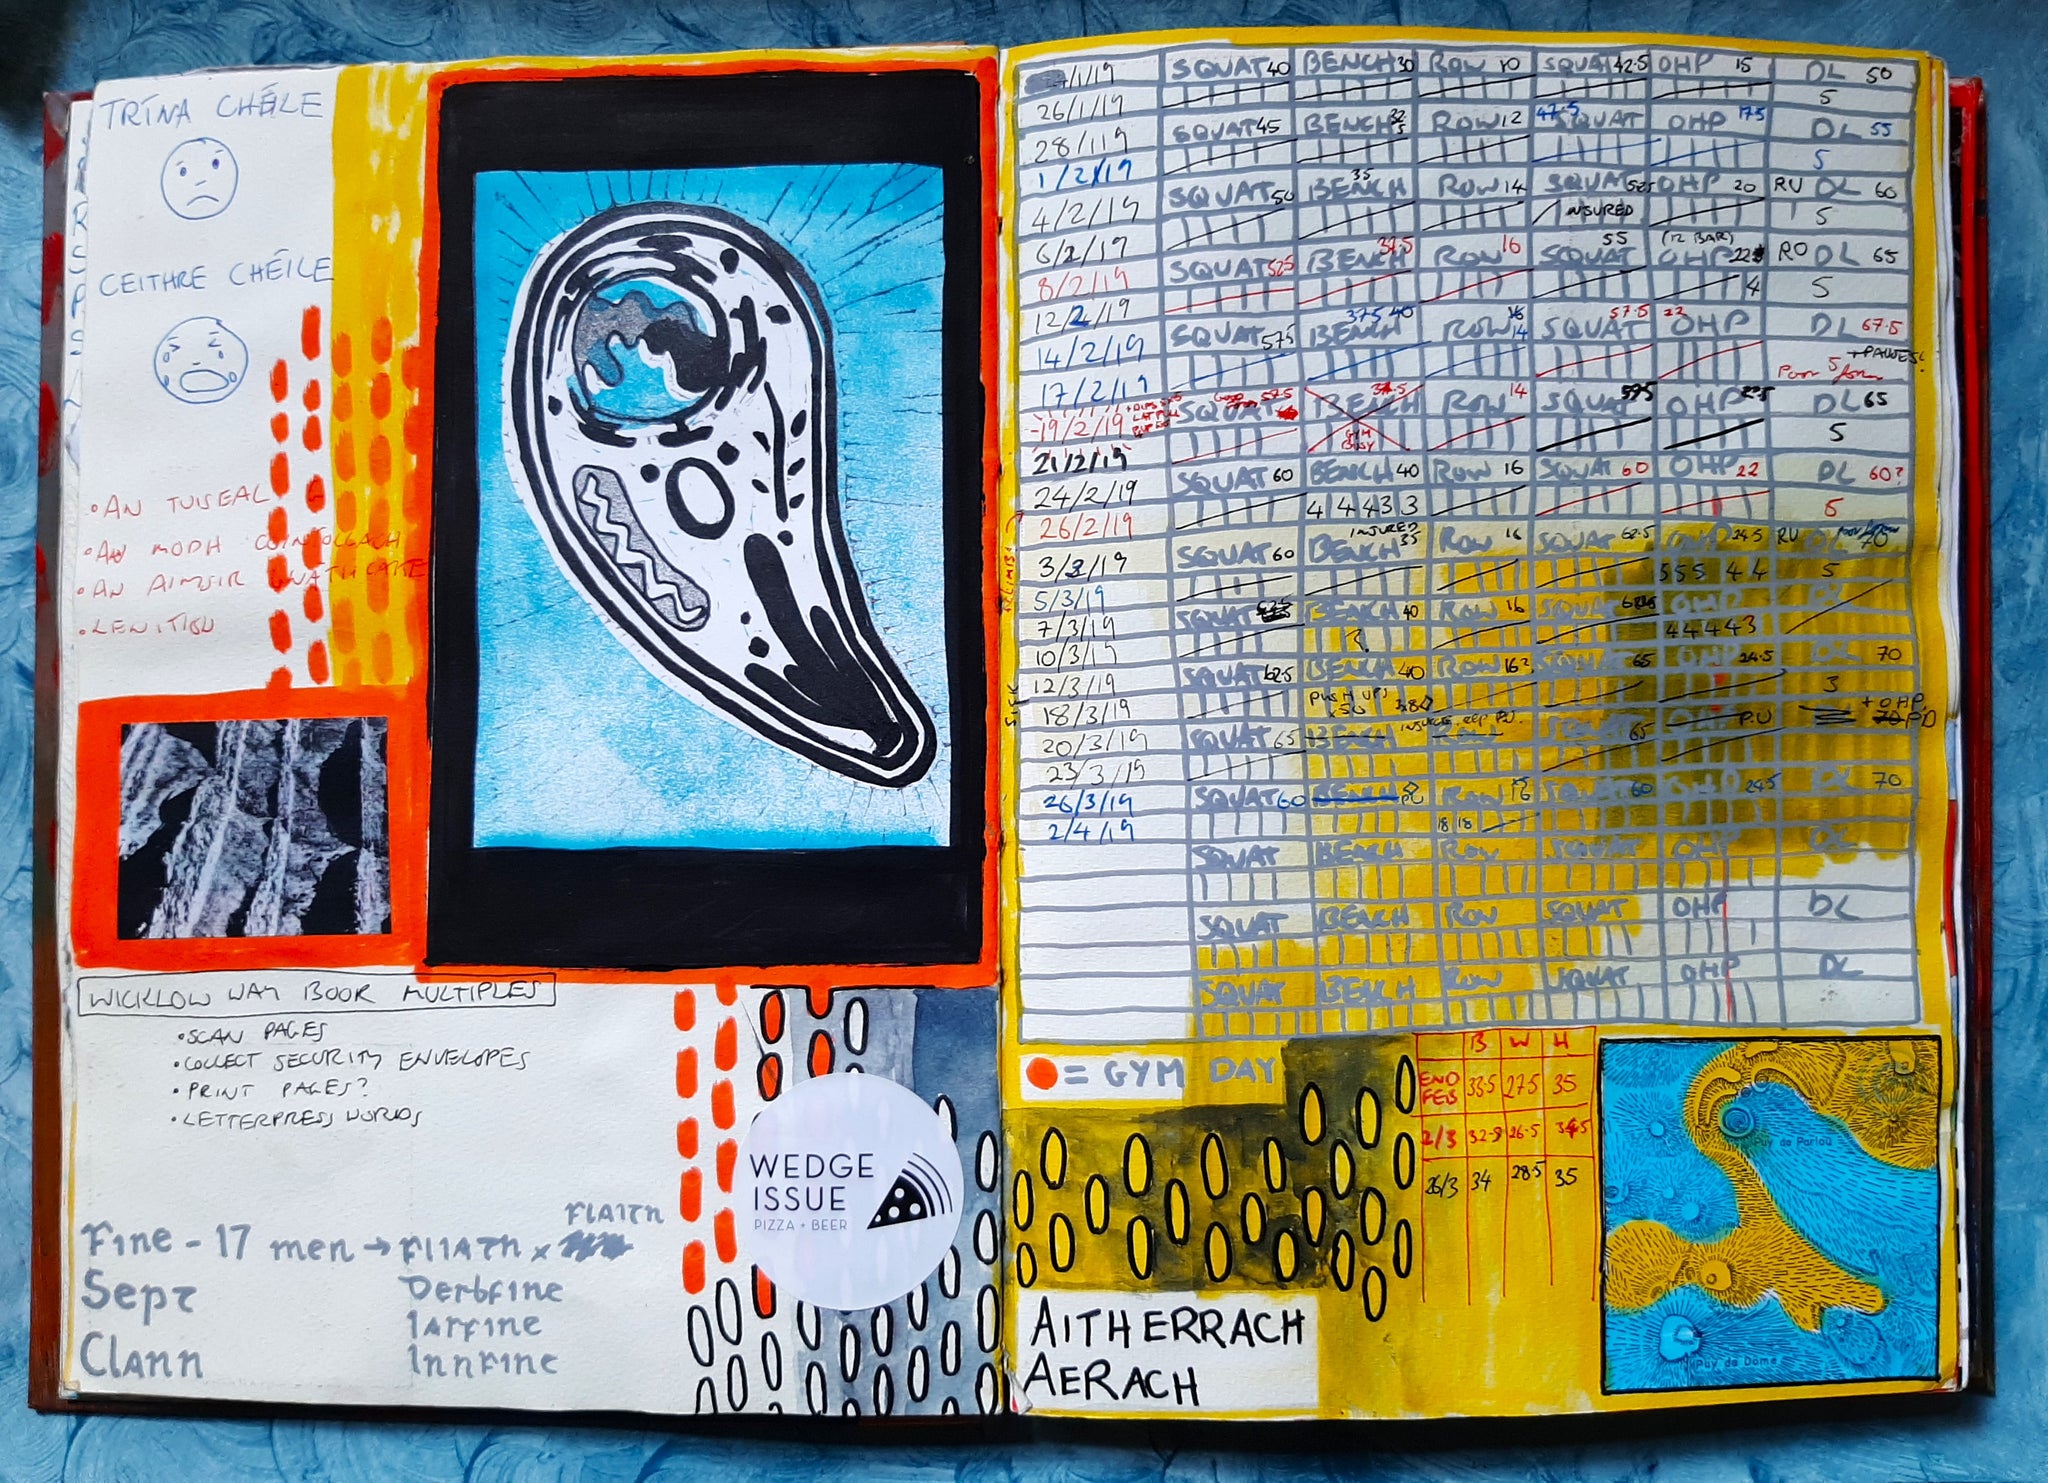 TRÍNA CHÉILE
CEITHRE CHÉILE
• AN TUISEAL
• AN MODH COINÍOLLACH
• AN AIMSIR GNÁTHCAITE
• LENITION
WICKLOW WAY BOOK MULTIPLES
• SCAN PAGES
• COLLECT SECURITY ENVELOPES
• PRINT PAGES?
• LETTERPRESS WORDS
FLAITH
Fine - 17 men → FLIATH x
Sept
Derbfine
Iarfine
Clann
Innfine
WEDGE
ISSUE
PIZZA + BEER
/1/19 SQUAT 40 BENCH 30 ROW 10 SQUAT 42.5 OHP 15 DL 50
26/1/19 5
28/1/19 SQUAT 45 BENCH 32.5 ROW 12 47.5 SQUAT OHP 17.5 DL 55
1/2/19 5
4/2/19 SQUAT 50 BENCH 35 ROW 14 SQUAT 52.5 OHP 20 RU DL 60
INSURED 5
6/2/19 SQUAT 52.5 BENCH 37.5 ROW 16 SQUAT 55 (12 BAR) OHP 22 RO DL 65
8/2/19 4 5
12/2/19 SQUAT 57.5 BENCH 37.5 40 ROW 16 14 SQUAT 57.5 22 OHP DL 67.5
14/2/19 + PAUSES!
17/2/19 Poor 5 form
19/2/19 + DIPS LAT PULL SQUAT 57.5 BENCH 37.5 ROW 14 SQUAT 59.5 OHP 22.5 DL 65
GYM BUSY 5
21/2/19 SQUAT 60 BENCH 40 ROW 16 SQUAT 60 OHP 22 DL 60?
24/2/19 4 4 4 3 3 5
26/2/19 SQUAT 60 INJURED BENCH 35 ROW 16 SQUAT 62.5 OHP 24.5 RU DL 70
3/3/19 5 5 5 4 4 5
5/3/19 SQUAT BENCH 40 ROW 16 SQUAT OHP DL
7/3/19 ? 4 4 4 4 3
10/3/19 SQUAT 62.5 BENCH 40 ROW 16? SQUAT 65 OHP 24.5 DL 70
12/3/19 3
SICK
18/3/19 PUSH UPS x50 + OHP
20/3/19 SQUAT 65 BENCH ROW SQUAT 65 P.U
23/3/19
26/3/19 SQUAT 60 BENCH PU ROW SQUAT 60 OHP 24.5 DL 70
2/4/19 18 18
SQUAT BENCH ROW SQUAT OHP DL
SQUAT BENCH ROW SQUAT OHP DL
SQUAT BENCH ROW SQUAT OHP DL
= GYM DAY
B W H
END FEB 33.5 27.5 35
2/3 32.5 26.5 34.5
26/3 34 28.5 35
AITHERRACH
AERACH
Puy de Pariou
Puy de Dôme